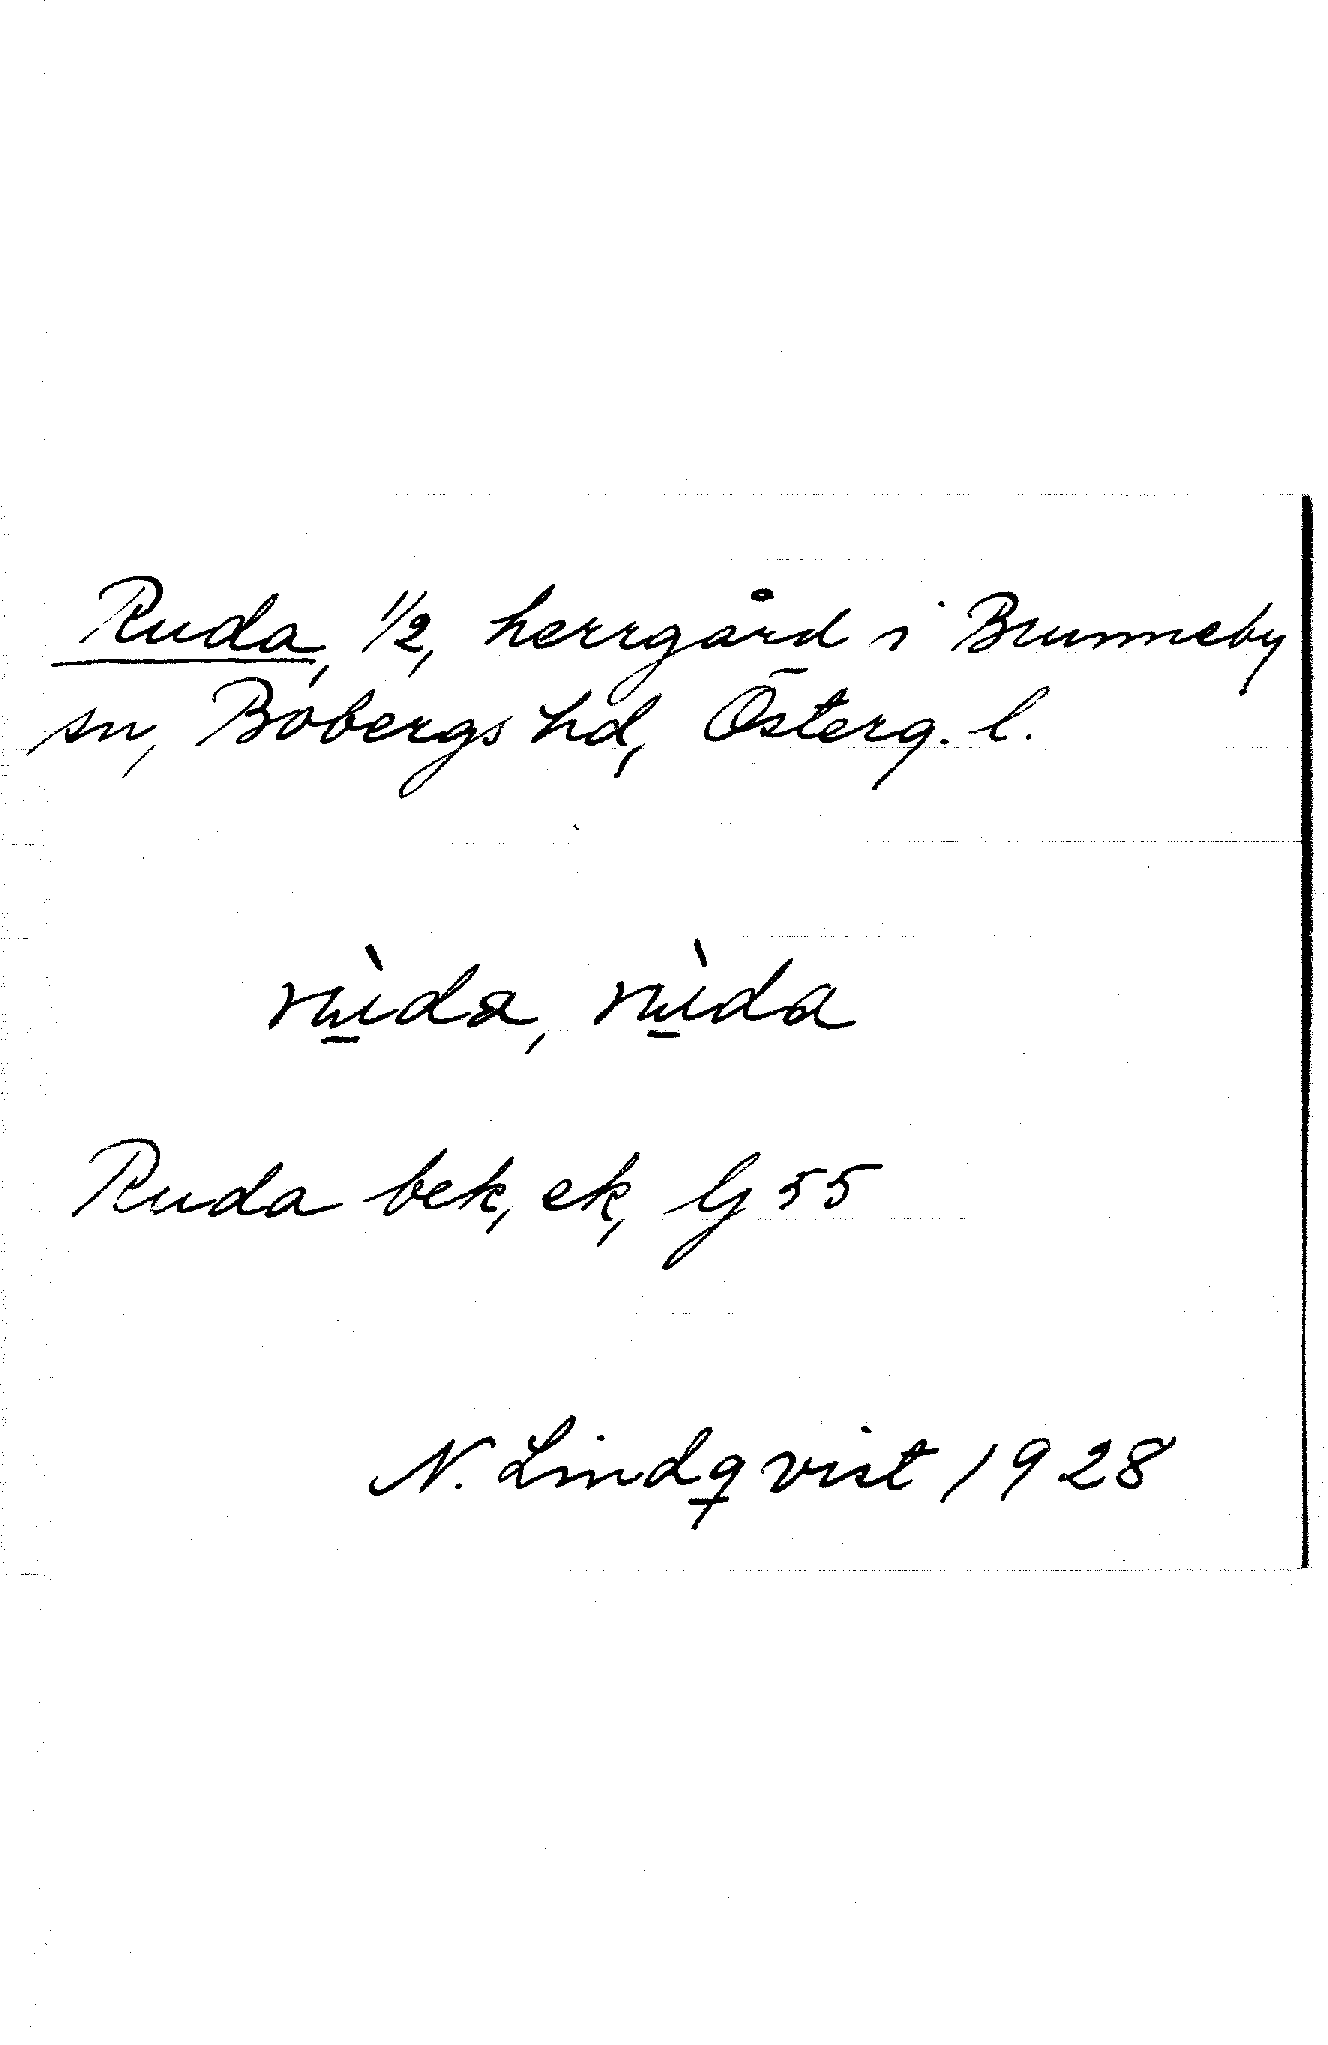 Ruda, 1/2, herrgård i Brunneby
sn, Bobergs hd, Österg. l.
rùda, rùda
Ruda bek, ek, G 55
N. Lindqvist 1928